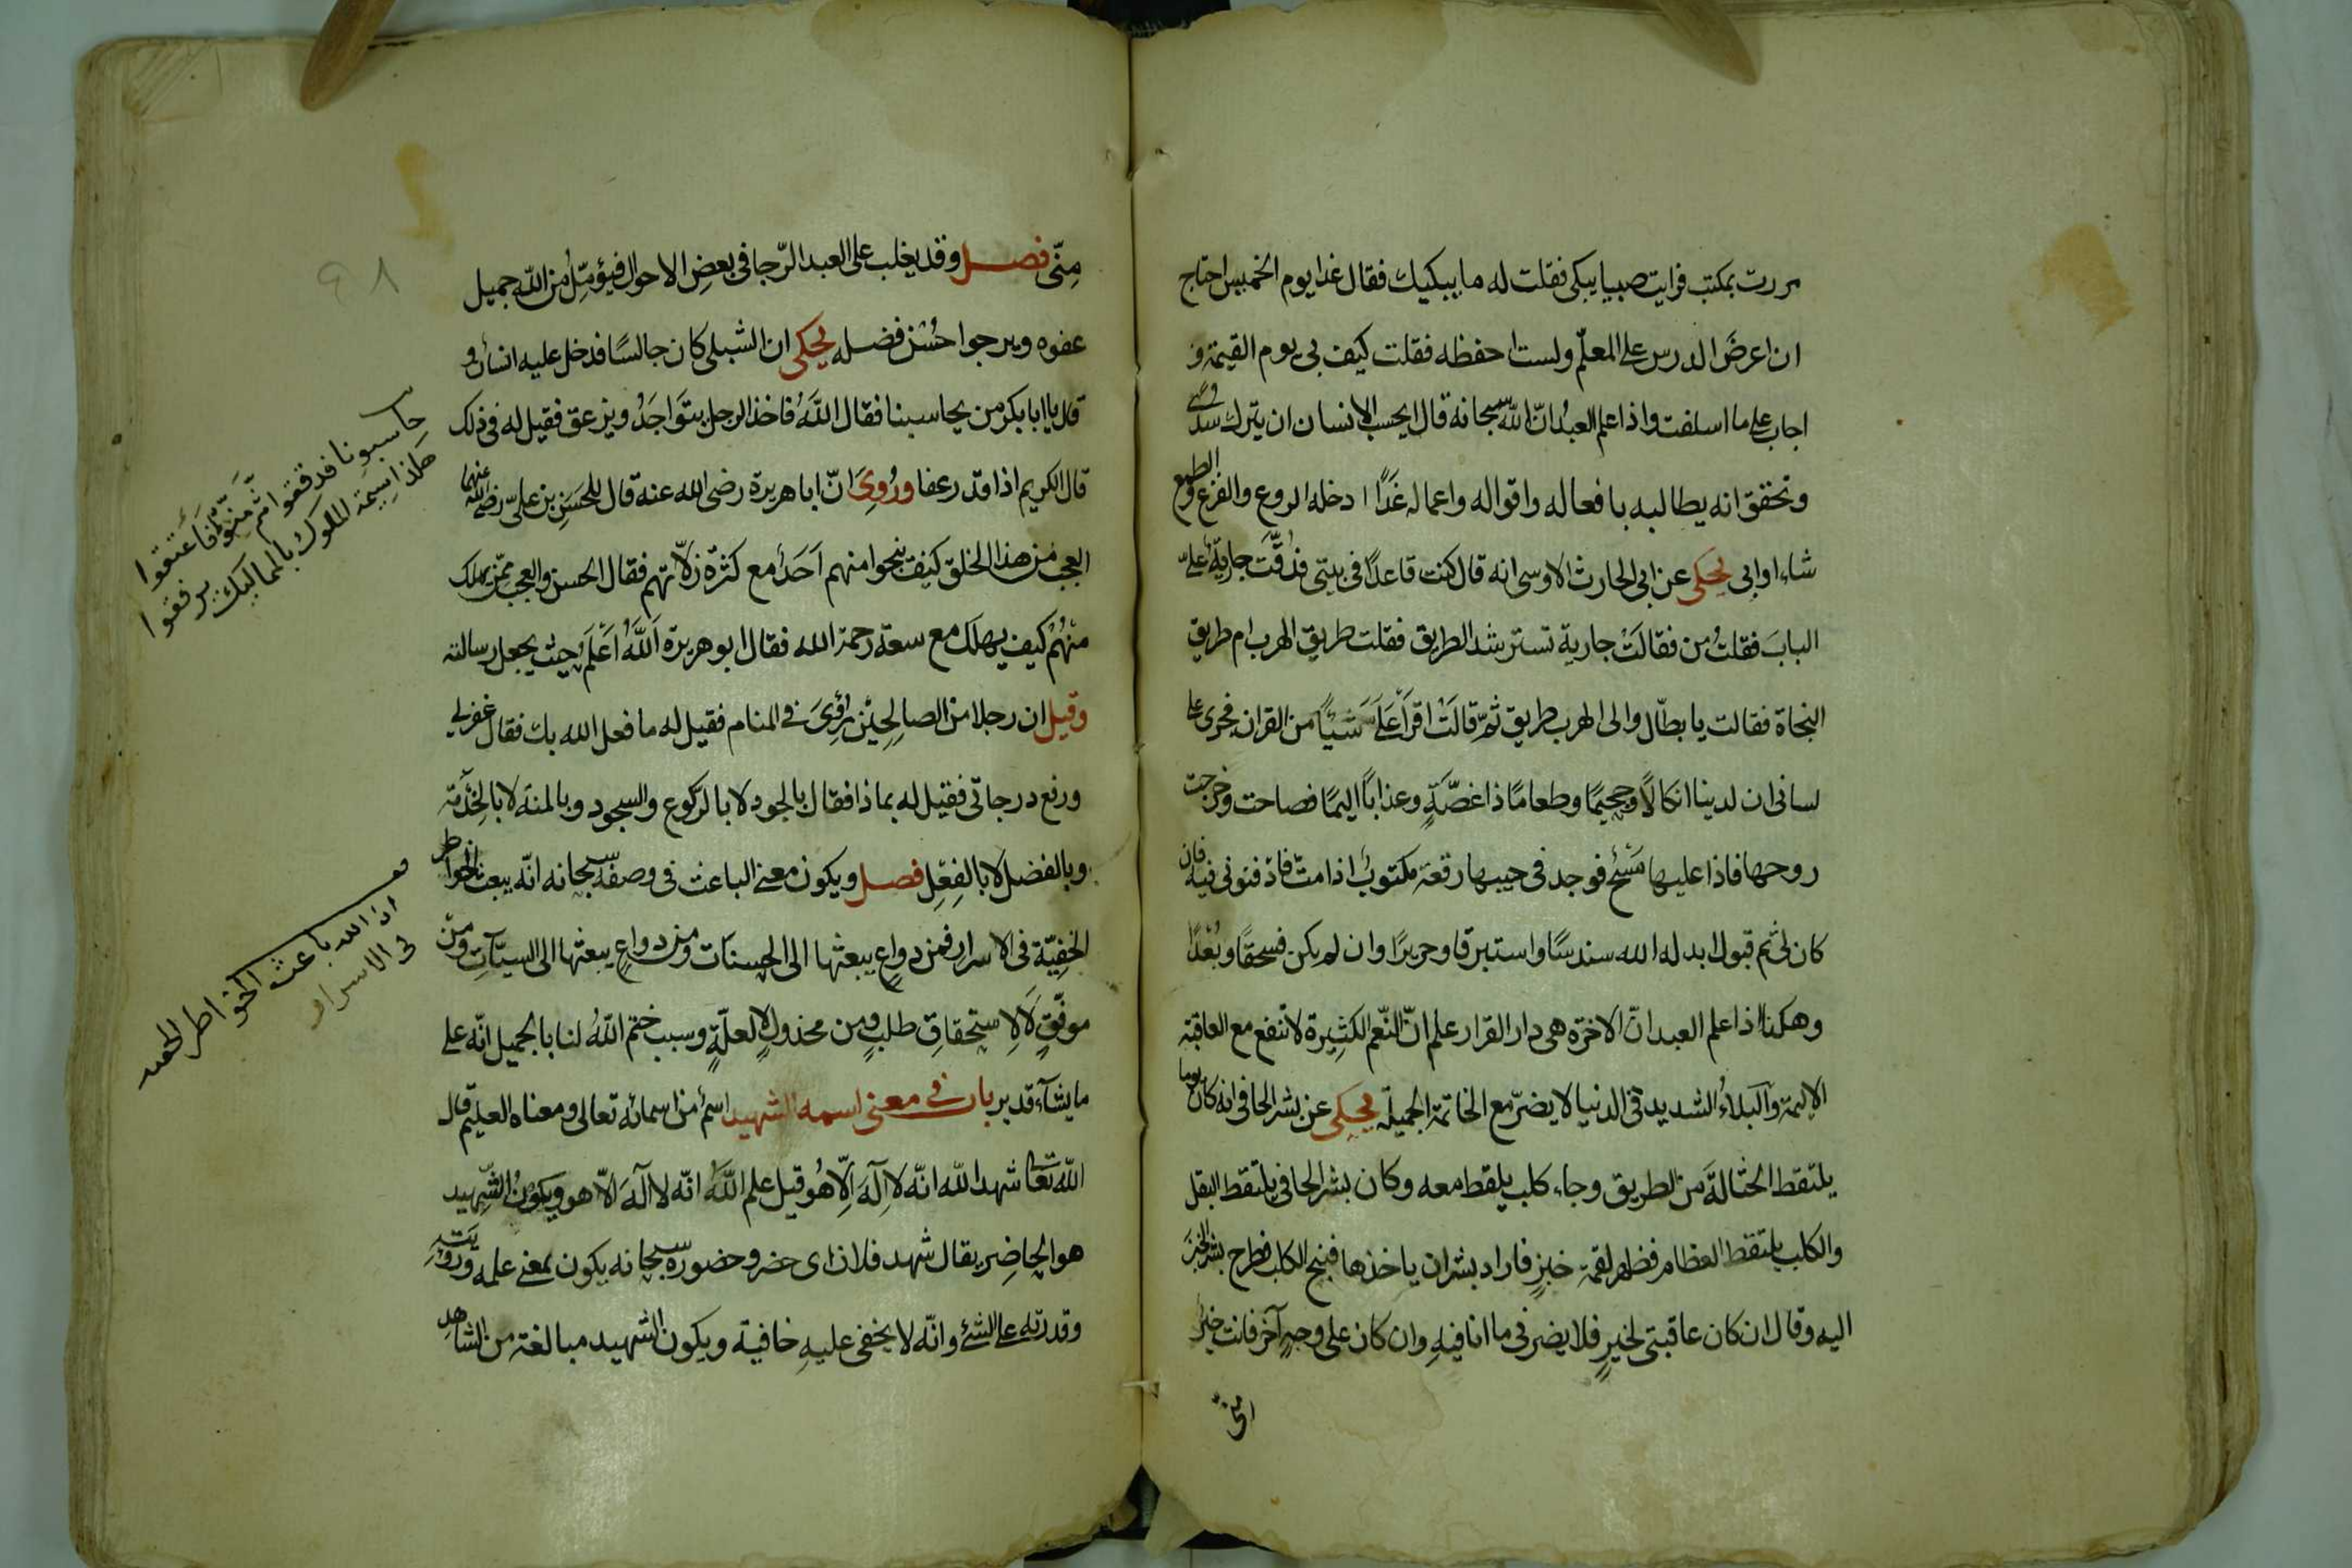 مررت بمكتب فرايت صبيا يبكى فقلت له ما يبكيك فقال غدا يوم الخميس احتاج
ان اعرضَ الدرس على المعلّم ولست احفظه فقلت كيف بى يوم القيمة و
اجاب على ما اسلفت واذا علم العبدُ انّ اللّه سبحانه قال ايحسب الانسان ان يترك سدى
وتحقق انه يطالبه بافعاله واقواله واعماله غَدًا ادخله الروع والفزع والطمع
شاء او ابى يحكى عن ابى الحارث الاوسى انه قال كنت قاعدًا فى بيتى فدُقَّت جاريةٌ علىّ
البابَ فقلتُ من فقالَتْ جارية تسترشد الطريق فقلت طريق الهرب ام طريق
النجاة فقالت يا بطّال والى الهرب طريق ثمّ قالَتْ اقرَأ عَلَىَّ شَيْأً من القران فجرى على
لسانى ان لدينا انكالًا وجحيمًا وطعامًا ذا غصّةٍ وعذابًا اليمًا فصاحت وخرجت
روحها فاذا عليها مَسْحٌ فوجد فى جيبها رقعة مكتوبٌ اذا متّ فادفنونى فيه فان
كان لى ثم قبول ابدله الله سندسًا واستبرقا وحريرًا وان لم يكن فسحقًا وبُعْدًا
وهكذا اذا علم العبد انّ الاخرة هى دار القرار علم انّ النّعم الكثيرة لا تنفع مع العاقبة
الاليمة والبلاءُ الشديد فى الدنيا لا يضرّ مع الخاتمة الجميلة يحكى عن بشر الحافى انه كان يوما
يلتقط الحثالةَ من الطريق وجاء كلب يلقط معه وكان بشر الحافى يلتقط البقل
والكلب يلتقط العظام فظهر لقمة خبزٍ فاراد بشر ان ياخذها فنبح الكلب فطرح بشر الخبزَ
اليه وقال ان كان عاقبتى لخيرٍ فلا يضرنى ما انا فيهِ وان كان على وجهٍ آخر فانت خيرٌ
منّى فصل وقد يغلب على العبد الرّجا فى بعضِ الاحوال فيؤمّلُ من اللّه جميل
عفوه ويرجوا حُسْن فضله يحكى ان الشبلى كان جالسًا فدخل عليه انسانٌ و
قال يا ابا بكر من يحاسبنا فقال اللّهُ فاخذ الرجل يتَوَاجَدُ ويزعق فقيل له فى ذلك
قال الكريم اذا قدر عفا ورُوِىَ انّ ابا هريرة رضى الله عنه قال للحسَنِ بن علىّ رضى اللّه عنهما
العجب من هذا الخلق كيف ينجوا منهم اَحَدٌ مع كثرة زلّاتهم فقال الحسن والعجب ممّن يهلك
منْهُمْ كيف يهلك مع سعة رحمة الله فقال ابو هريرة اَللّهُ اَعْلَم حيث يجعل رسالته
وقيل ان رجلا من الصالحين رُؤِىَ فى المنام فقيل له ما فعل الله بك فقال غفر لى
ورفع درجاتى فقيل له بماذا فقال بالجود لا بالرّكوع والسجود وبالمنة لا بالخِدْمَة
وبالفضل لا بالفِعْلِ فصل ويكون معنى الباعث فى وصفه سبحانه انّه يبعث الخواطر
الخفِيّة فى الاسرار فمن دواعٍ يبعثها الى الحسنات ومن دواعٍ يبعثها الى السيّآتِ ومن
موفّقٍ لَا لِاستحقاقِ طلبٍ ومن مخذولٍ لا لعلّةٍ وسبب ختم اللّهُ لنا بالجميل انّه على
ما يشآء قدير باب فى معنى اسمه الشهيد اسمٌ من اسمائه تعالى ومعناه العليم قال
اللّه تعالى شهد اللّه انّه لا آلهَ اِلّا هُو قيل علم اللّهُ انّه لا آلهَ الّا هو ويكونُ الشّهيد
هو الحاضِر يقال شهد فلان اى حضر وحضوره سبحانه يكون بمعنى علمه ورؤيته
وقدرته على الشئ وانّه لا يخفى عليهِ خافية ويكون الشهيد مبالغة من الشاهدِ
حاسبونا فدققوا ثم منّوا فأعتقوا
هكذا سيمة الملوك بالمماليك يرفقوا
ان الله باعث الخواطر الخفية
فى الاسرار
٩٨